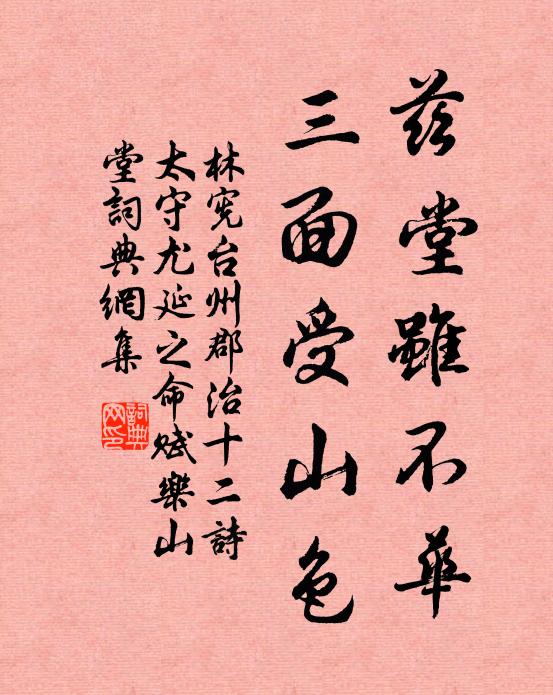 茲堂雖不華
三面受山色
林宪台州郡治十二詩
太守尤延之命賦樂山
堂詞典網集
詞典
网印